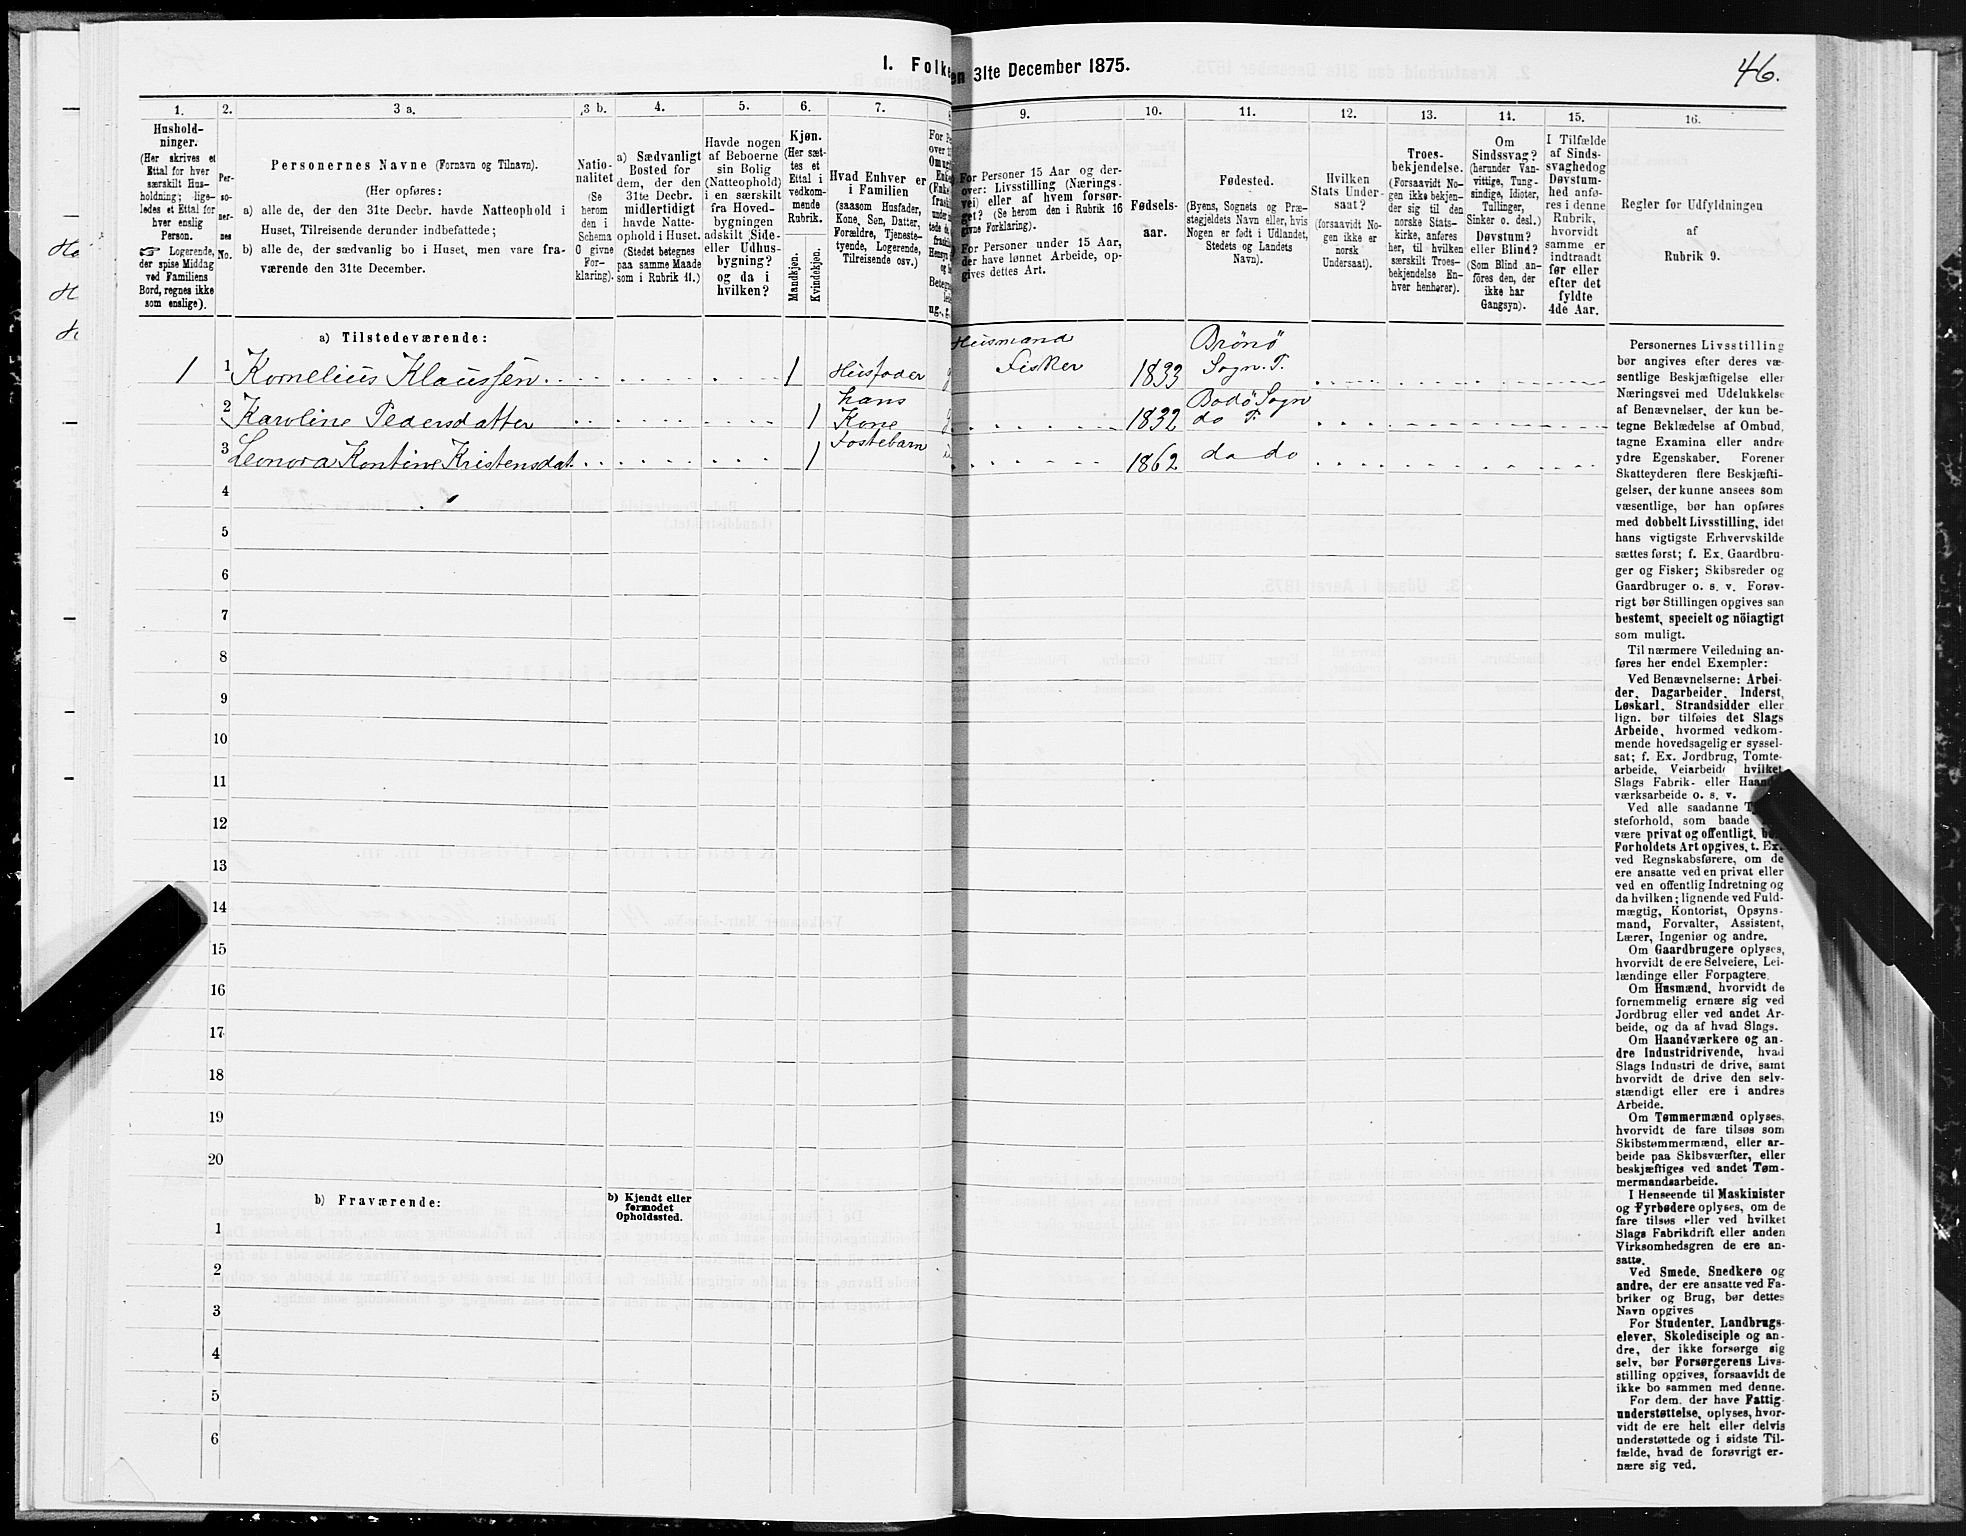 46.
I. Folke
en 31te December 1875.
1.
2.
3 a.
3 b.
4.
5.
6.
7.
8
9.
10.
11.
12.
13.
14.
15.
16.
Hushold-
ninger.
(Her skrives et
Ettal for hver
særskilt Hus-
holdning; lige-
ledes et Ettal for
hver enslig
Person.
☞ Logerende,
der spise Middag
ved Familiens
Bord, regnes ikke
som enslige).
Per-
so-
ner-
nes
No.
Personernes Navne (Fornavn og Tilnavn).
(Her opføres:
a) alle de, der den 31te Decbr. havde Natteophold i
Huset, Tilreisende derunder indbefattede;
b) alle de, der sædvanlig bo i Huset, men vare fra-
værende den 31te December.
Natio-
nalitet
(Se
herom
den i
Schema
G givne
For-
klaring).
a) Sædvanligt
Bosted for
dem, der den
31te Decbr.
midlertidigt
havde Natte-
ophold i Huset.
(Stedet betegnes
paa samme Maade
som i Rubrik 11.)
Havde nogen
af Beboerne
sin Bolig
(Natteophold)
i en særskilt
fra Hoved-
bygningen
adskilt Side-
eller Udhus-
bygning?
og da i
hvilken?
Kjøn.
(Her sæt-
tes et
Ettal i
vedkom-
mende
Rubrik.
Mandkjøn.
Kvindekjøn.
Hvad Enhver er
i Familien
(saasom Husfader,
Kone, Søn, Datter,
Forældre, Tjeneste-
tyende, Logerende,
Tilreisende osv.)
For Personer 15 Aar og der-
over: Livsstilling (Nærings-
vei) eller af hvem forsør-
get? (Se herom den i Rubrik 16
givne Forklaring).
For Personer under 15 Aar,
der have lønnet Arbeide, op-
gives dettes Art.
Fødsels-
aar.
Fødested.
(Byens, Sognets og Præ-
stegjeldets Navn eller, hvis
Nogen er født i Udlandet,
Stedets og Landets
Navn).
Hvilken
Stats Under-
saat?
(forsaavidt No-
gen ikke er
norsk
Undersaat).
Troes-
bekjendelse.
(Forsaavidt No-
gen ikke bekjen-
der sig til den
norske Stats-
kirke, anføres
her, til hvilken
særskilt Troes-
bekjendelse En-
hver henhører).
Om
Sindssvag?
(herunder Van-
vittige, Tung-
sindige, Idioter,
Tullinger,
Sinker o. desl.)
Døvstum?
eller Blind?
(Som Blind an-
føres den, der
ikke har
Gangsyn).
I Tilfælde
af Sinds-
svaghed og
Døvstum-
hed anfø-
res i denne
Rubrik,
hvorvidt
samme er
indtraadt
før eller
efter det
fyldte
4de Aar.
Regler for Udfyldningen
af
Rubrik 9.
a) Tilstedeværende:
1 1 Kornelius Klaussen 1 Husfader Husmand Fisker 1833 Brönö Sogn. P.
2 Karoline Pedersdatter 1 hans Kone 1832 Bodö Sogn do P.
3 Leonora Kontine Kristensdat. 1 Fostebarn 1862 do do
4
5
6
7
8
9
10
11
12
13
14
15
16
17
18
19
20
b) Fraværende:
b) Kjendt eller
formodet
Opholdssted.
1
2
3
4
5
6
Personernes Livsstilling
bør angives efter deres væ-
sentlige Beskjæftigelse eller
Næringsvei med Udelukkelse
af Benævnelser, der kun be-
tegne Beklædelse af Ombud,
tagne Examina eller andre
ydre Egenskaber. Forener
Skatteyderen flere Beskjæfti-
gelser, der kunne ansees som
væsentlige, bør han opføres
med dobbelt Livsstilling, idet
hans vigtigste Erhvervskilde
sættes først; f. Ex. Gaardbru-
ger og Fisker; Skibsreder og
Gaardbruger o. s. v. Forøv-
rigt bør Stillingen opgives saa
bestemt, specielt og nöiagtigt
som muligt.
Til nærmere Veiledning an-
føres her endel Exempler:
Ved Benævnelserne: Arbei-
der, Dagarbeider, Inderst,
Løskarl, Strandsidder eller
lign. bør tilføies det Slags
Arbeide, hvormed vedkom-
mende hovedsagelig er syssel-
sat; f. Ex. Jordbrug, Tomte-
arbeide, Veiarbeide, hvilket
Slags Fabrik- eller Haand-
værksarbeide o. s. v.
Ved alle saadanne
steforhold, som baade
være privat og offentligt, bør
Forholdets Art opgives, t. Ex.
ved Regnskabsførere, om de
ere ansatte ved en privat eller
ved en offentlig Indretning og
da hvilken; lignende ved Fuld-
mægtig, Kontorist, Opsyns-
mand, Forvalter, Assistent,
Lærer, Ingeniør og andre.
Om Gaardbrugere oplyses,
hvorvidt de ere Selveiere, Lei-
lændinge eller Forpagtere.
Om Husmænd, hvorvidt de
fornemmelig ernære sig ved
Jordbrug eller ved andet Ar-
beide, og da af hvad Slags.
Om Haandværkere og an-
dre Industridrivende, hvad
Slags Industri de drive, samt
hvorvidt de drive den selv-
stændigt eller ere i andres
Arbeide.
Om Tømmermænd oplyses,
hvorvidt de fare tilsøs som
Skibstømmermænd, eller ar-
beide paa Skibsværfter, eller
beskjæftiges ved andet Tøm-
mermandsarbeide.
I Henseende til Maskinister
og Fyrbødere oplyses, om de
fare tilsøs eller ved hvilket
Slags Fabrikdrift eller anden
Virksomhedsgren de ere an-
satte.
Ved Smede, Snedkere og
andre, der ere ansatte ved Fa-
briker og Brug, bør dettes
Navn opgives
For Studenter, Landbrugs-
elever, Skoledisciple og an-
dre, der ikke forsørge sig
selv, bør Forsørgerens Livs-
stilling opgives, forsaavidt de
ikke bo sammen med denne.
For dem, der have Fattig-
understøttelse, oplyses, hvor-
vidt de ere helt eller delvis
understøttede og i sidste Til-
fælde, hvad de forøvrigt er-
nære sig ved.